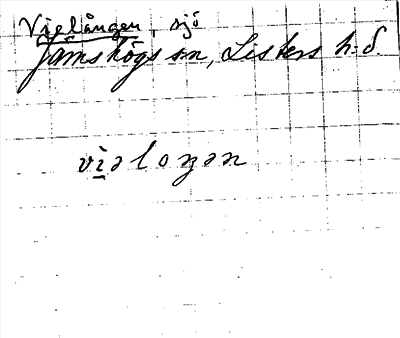 Vielången, sjö
Jämshögs sn, Listers h:d.
vi̲əloŋən